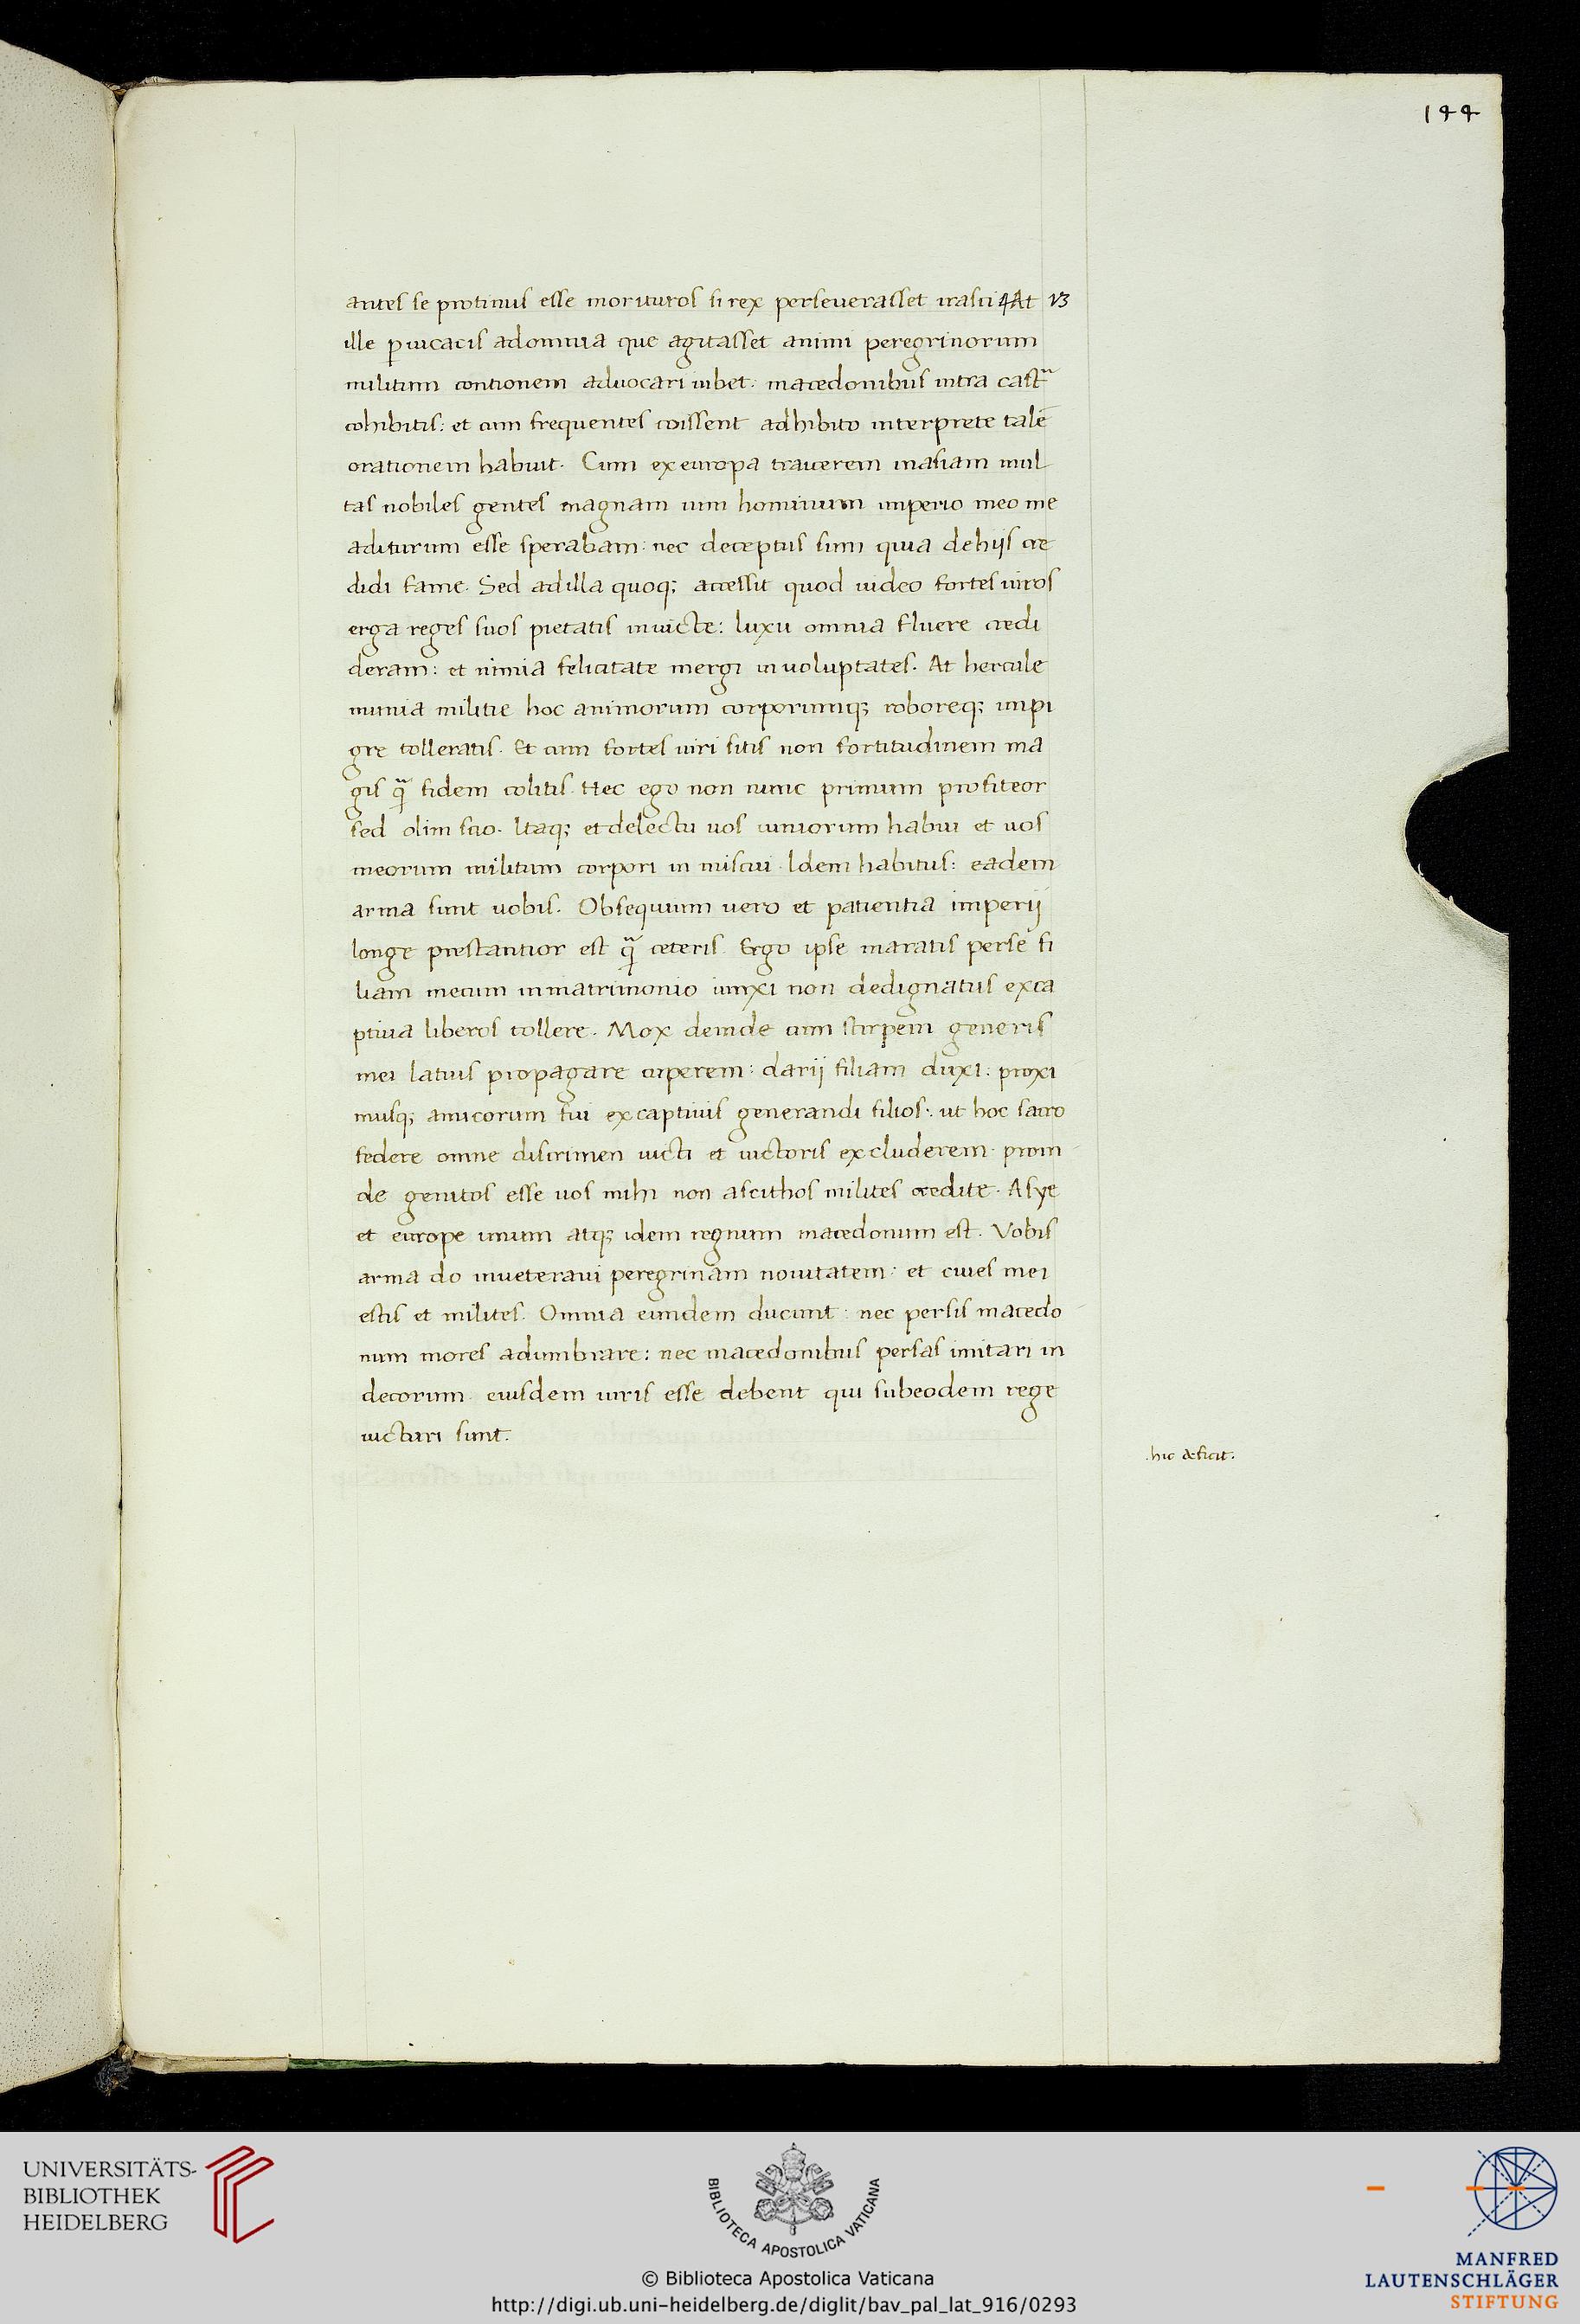 144
antes se protinus esse morituros si rex perseuerasset irasci At 13
ille p̱uicacis adomnia que agitasset animi peregrinorum
militum contionem aduocari iubet: macedonibus intra castᵃ
cohibitis: et cum frequentes coissent adhibito interprete talē
orationem habuit. Cum exeuropa traicerem inasiam mul
tas nobiles gentes magnam uim hominum imperio meo me
aditurum esse sperabam: nec deceptus sum quia dehijs cre
didi fame. Sed adilla quoq; accessit quod uideo fortes uiros
erga reges suos pietatis inuicte: luxu omnia fluere credi
deram: et nimia felicitate mergi inuoluptates. At hercule
munia militie hoc animorum corporumq; roboreq; impi
gre tolleratis. Et cum fortes uiri sitis non fortitudinem ma
gis qᵃ fidem colitis. Hec ego non nunc primum profiteor
sed olim scio. Itaq; et delectu uos iuniorum habui et uos
meorum militum corpori in miscui. Idem habitus: eadem
arma sunt uobis. Obsequium uero et patientia imperij
longe prestantior est qᵃ ceteris. Ergo ipse maratis perse fi
liam mecum inmatrimonio iunxi non dedignatus exca
ptiua liberos tollere. Mox deinde cum stirpem generis
mei latius propagare cuperem: darij filiam duxi: proxi
musq; amicorum fui excaptiuis generandi filios: ut hoc sacro
federe omne discrimen uicti et uictoris excluderem. proin
de genitos esse uos mihi non ascithos milites credite. Asye
et europe unum atq; idem regnum macedonum est. Vobis
arma do inueteraui peregrinam nouitatem: et ciues mei
estis et milites. Omnia eundem ducunt: nec persis macedo
num mores adumbrare: nec macedonibus persas imitari in
decorum. eiusdem iuris esse debent qui subeodem rege
uicturi sunt.
.hic deficit.
UNIVERSITÄTS-
BIBLIOTHEK
HEIDELBERG
BIBLIOTECA APOSTOLICA VATICANA
© Biblioteca Apostolica Vaticana
http://digi.ub.uni-heidelberg.de/diglit/bav_pal_lat_916/0293
MANFRED
LAUTENSCHLÄGER
STIFTUNG